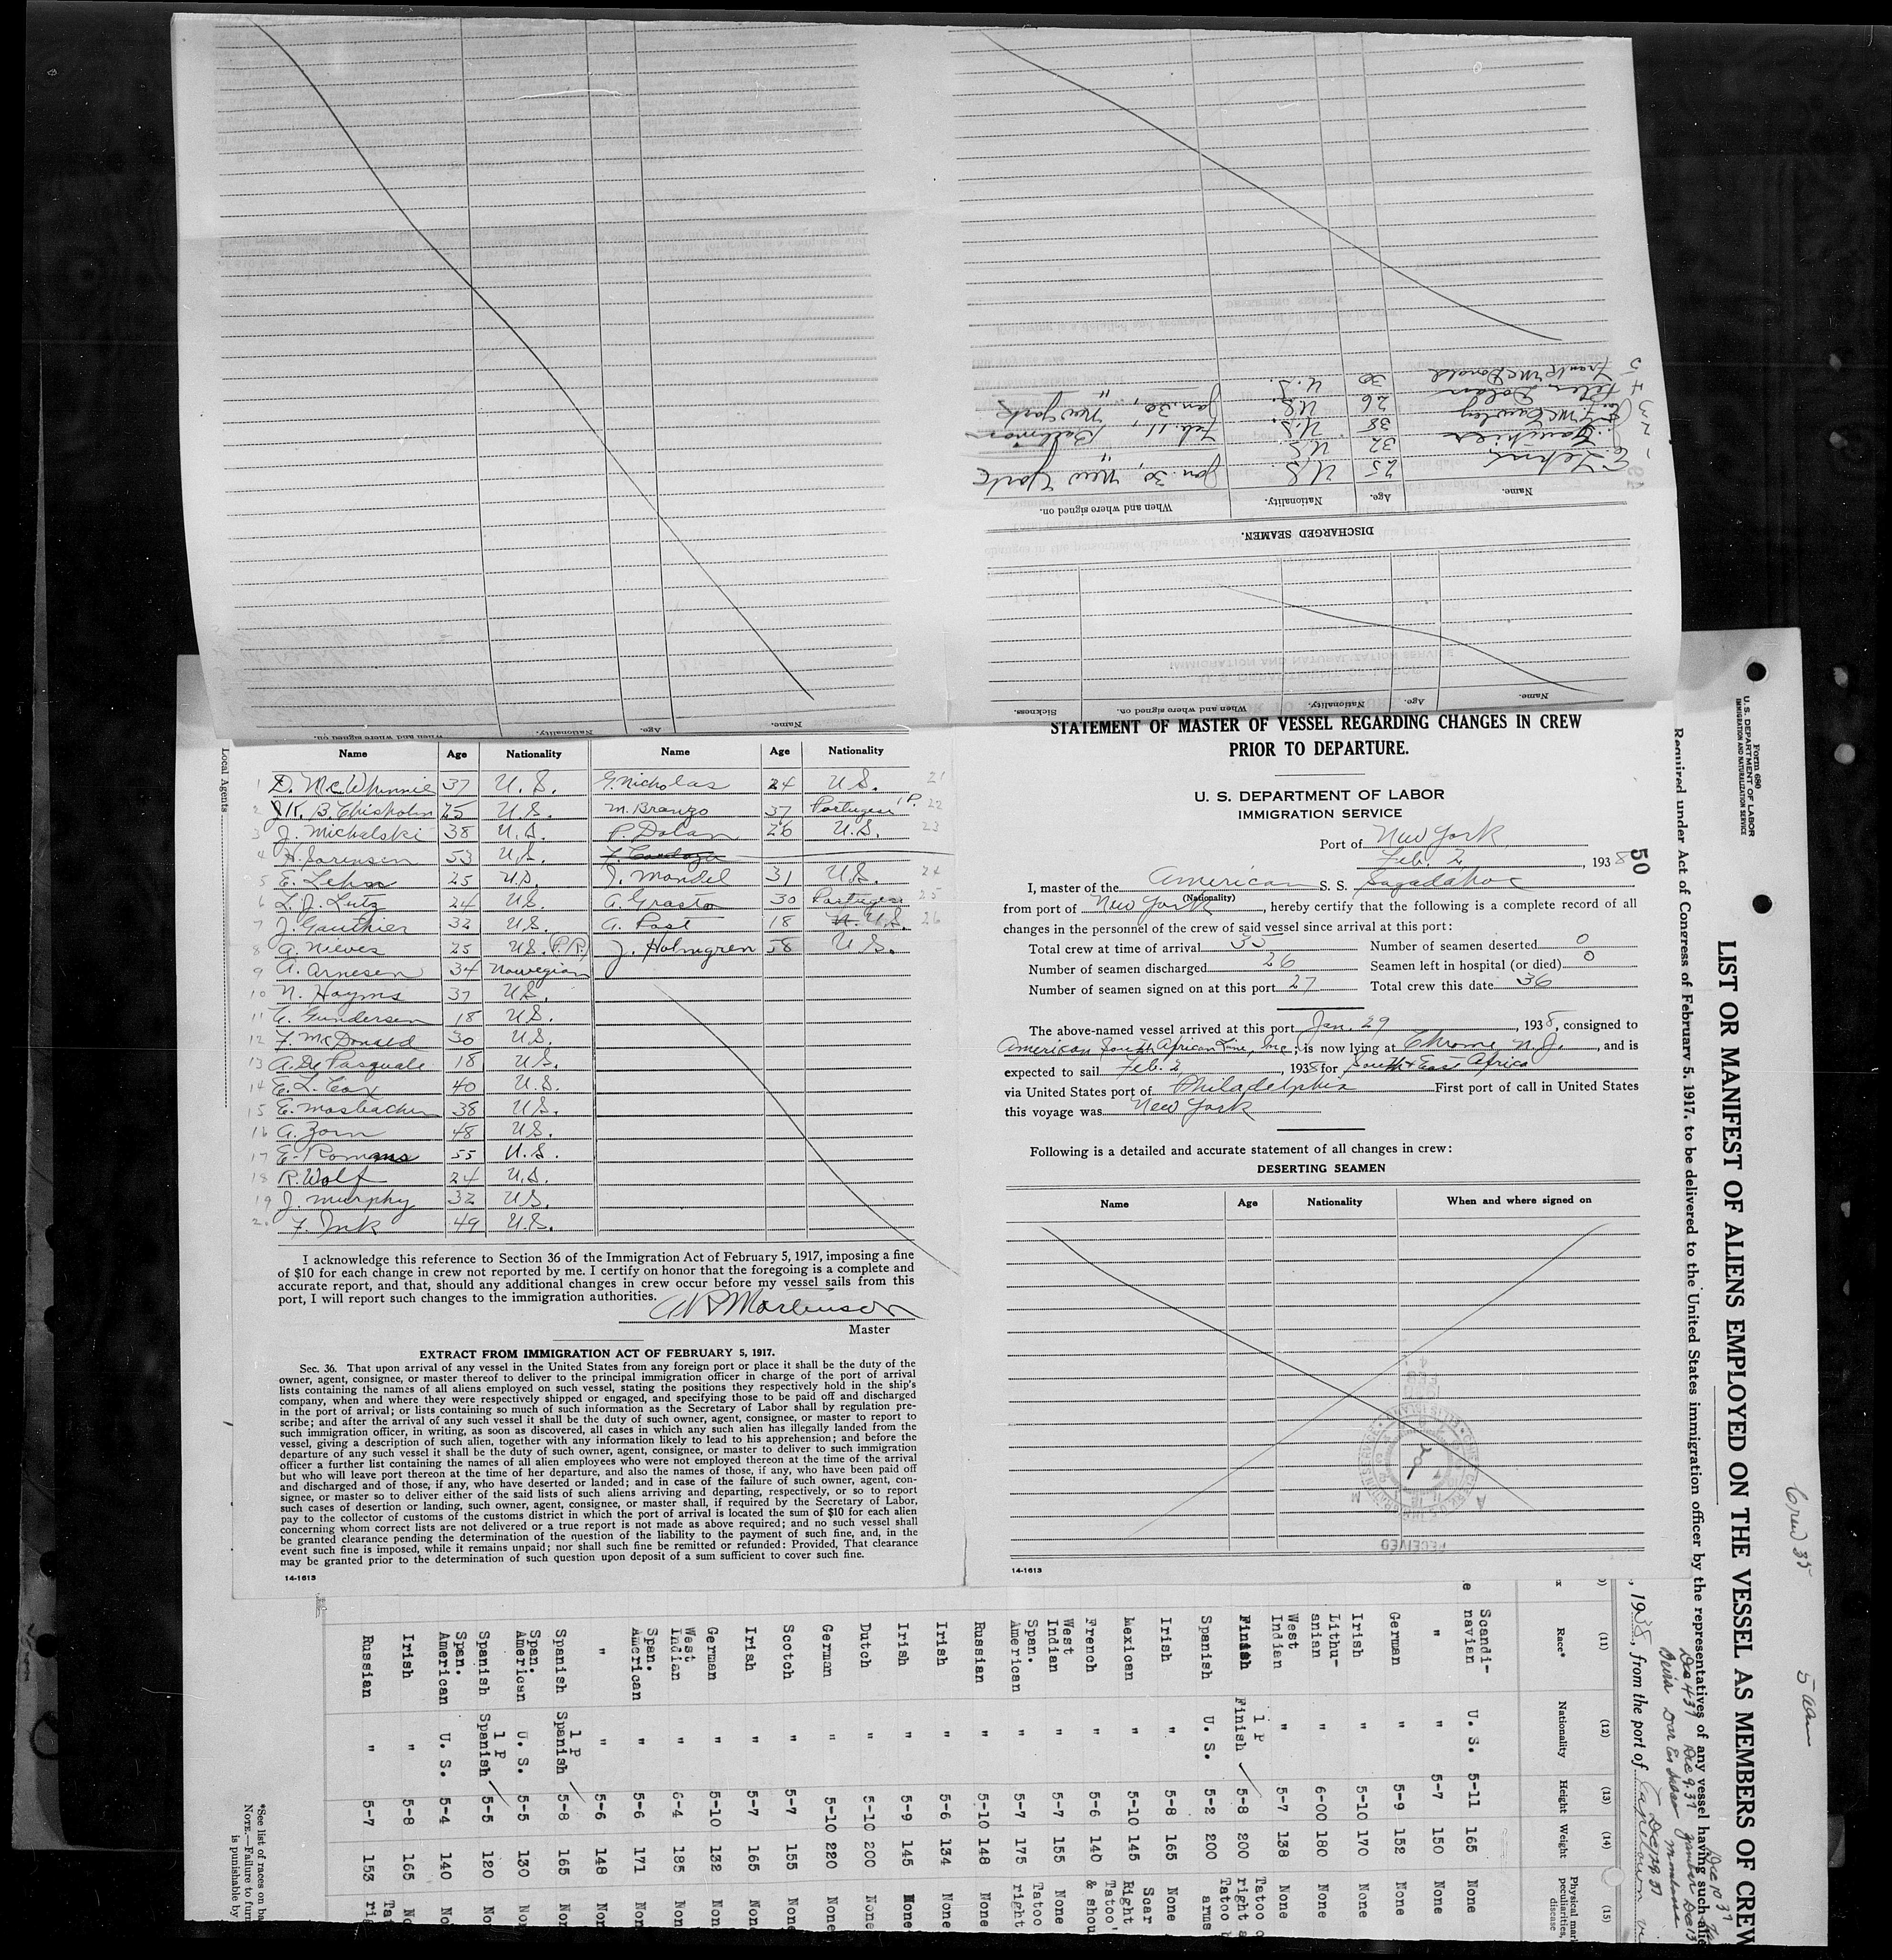 DISCHARGED SEAMEN.
Name. Age. Nationality. When and where signed on.
1 E. Lehne 25 U.S. Jan. 30, New York
2 J. Gauthier 32 U.S. "
3 McCawley 38 U.S. Feb. 11, Baltimore
4 Peter Dolan 26 U.S. Jan. 30, New York
5 Frank McDonald 30 U.S. "
Name. Age. Nationality. When and where signed on. Sickness.
Name. Age. Nationality. When and where signed on.
Local Agents
Name Age Nationality Name Age Nationality
1 D. McWhinnie 37 U.S. G. Nicholas 24 U.S. 21
2 J.K.B. Chisholm 25 U.S. M. Branzo 37 Portugese 1 P. 22
3 J. Michalski 38 U.S. P. Dolan 26 U.S. 23
4 H. Sorensen 53 U.S. F. Cardoza
5 E. Lehne 25 U.S. J. Mandel 31 U.S. 24
6 L.J. Lutz 24 U.S. A. Grasto 30 Portugese 25
7 J. Gauthier 32 U.S. A. Post 18 U.S. 26
8 A. Nieves 25 U.S. (P.R.) J. Holmgren 58 U.S.
9 A. Arnesen 34 Norwegian
10 N. Hayms 37 U.S.
11 C. Gundersen 18 U.S.
12 F. McDonald 30 U.S.
13 A. De Pasquale 18 U.S.
14 E. L. Cox 40 U.S.
15 E. Mosbacher 38 U.S.
16 A. Zorn 48 U.S.
17 E. Romans 55 U.S.
18 R. Wolf 24 U.S.
19 J. Murphy 32 U.S.
20 F. Ink 49 U.S.
I acknowledge this reference to Section 36 of the Immigration Act of February 5, 1917, imposing a fine
of $10 for each change in crew not reported by me. I certify on honor that the foregoing is a complete and
accurate report, and that, should any additional changes in crew occur before my vessel sails from this
port, I will report such changes to the immigration authorities.
Master
EXTRACT FROM IMMIGRATION ACT OF FEBRUARY 5, 1917.
Sec. 36. That upon arrival of any vessel in the United States from any foreign port or place it shall be the duty of the
owner, agent, consignee, or master thereof to deliver to the principal immigration officer in charge of the port of arrival
lists containing the names of all aliens employed on such vessel, stating the positions they respectively hold in the ship's
company, when and where they were respectively shipped or engaged, and specifying those to be paid off and discharged
in the port of arrival; or lists containing so much of such information as the Secretary of Labor shall by regulation pre-
scribe; and after the arrival of any such vessel it shall be the duty of such owner, agent, consignee, or master to report to
such immigration officer, in writing, as soon as discovered, all cases in which any such alien has illegally landed from the
vessel, giving a description of such alien, together with any information likely to lead to his apprehension; and before the
departure of any such vessel it shall be the duty of such owner, agent, consignee, or master to deliver to such immigration
officer a further list containing the names of all alien employees who were not employed thereon at the time of the arrival
but who will leave port thereon at the time of her departure, and also the names of those, if any, who have been paid off
and discharged and of those, if any, who have deserted or landed; and in case of the failure of such owner, agent, con-
signee, or master so to deliver either of the said lists of such aliens arriving and departing, respectively, or so to report
such cases of desertion or landing, such owner, agent, consignee, or master shall, if required by the Secretary of Labor,
pay to the collector of customs of the customs district in which the port of arrival is located the sum of $10 for each alien
concerning whom correct lists are not delivered or a true report is not made as above required; and no such vessel shall
be granted clearance pending the determination of the question of the liability to the payment of such fine, and, in the
event such fine is imposed, while it remains unpaid; nor shall such fine be remitted or refunded: Provided, That clearance
may be granted prior to the determination of such question upon deposit of a sum sufficient to cover such fine.
14-1613
STATEMENT OF MASTER OF VESSEL REGARDING CHANGES IN CREW
PRIOR TO DEPARTURE.
U. S. DEPARTMENT OF LABOR
IMMIGRATION SERVICE
Port of New York
Feb. 2, 1938
50
I, master of the American S. S. Sagadahoc
(Nationality)
from port of New York, hereby certify that the following is a complete record of all
changes in the personnel of the crew of said vessel since arrival at this port:
Total crew at time of arrival 35 Number of seamen deserted 0
Number of seamen discharged 26 Seamen left in hospital (or died) 0
Number of seamen signed on at this port 27 Total crew this date 36
The above-named vessel arrived at this port Jan. 29, 1938, consigned to
American South African Line, Inc.; is now lying at Chrome, N.J., and is
expected to sail Feb. 2, 1938 for South & East Africa
via United States port of Philadelphia First port of call in United States
this voyage was New York
Following is a detailed and accurate statement of all changes in crew:
DESERTING SEAMEN
Name Age Nationality When and where signed on
RECEIVED
14-1613
Form 680
U. S. DEPARTMENT OF LABOR
IMMIGRATION AND NATURALIZATION SERVICE
LIST OR MANIFEST OF ALIENS EMPLOYED ON THE VESSEL AS MEMBERS OF CREW
Required under Act of Congress of February 5, 1917, to be delivered to the United States immigration officer by the representatives of any vessel having such alie
Crew 35
, 1938, from the port of Capetown
(11) (12) (13) (14) (15)
Race* Nationality Height Weight Physical mar peculiarities, disease
Scandi-navian U. S. 5-11 165 None
" " 5-7 150 None
German " 5-9 152 None
Irish " 5-10 170 None
Lithu-anian " 6-00 180 None
West Indian " 5-7 138 None
Finish 1 P Finish 5-8 200 Tatoo right
Spanish U. S. 5-2 200 Tatoo arms
Irish " 5-8 165 None
Mexican " 5-10 145 Scar Right
French " 5-6 140 Tatoo & shou
West Indian " 5-7 155 None
Span. American " 5-7 175 Tatoo right
Russian " 5-10 148 None
Irish " 5-6 134 None
Irish " 5-9 145 None
Dutch " 5-10 200 None
German " 5-10 220 None
Scotch " 5-7 155 None
Irish " 5-7 165 None
German " 5-10 132 None
West Indian " 6-4 185 None
Span. American " 5-6 171 None
" " 5-6 148 None
Spanish 1 P Spanish 5-8 165 Non
Span. American U. S. 5-5 130 Non
Spanish 1 P Spanish 5-5 120 No
Span. American U. S. 5-4 140 No
Irish " 5-8 165 No
Russian " 5-7 153 Ta ri
*See list of races on ba
NOTE.—Failure to furn
is punishable by